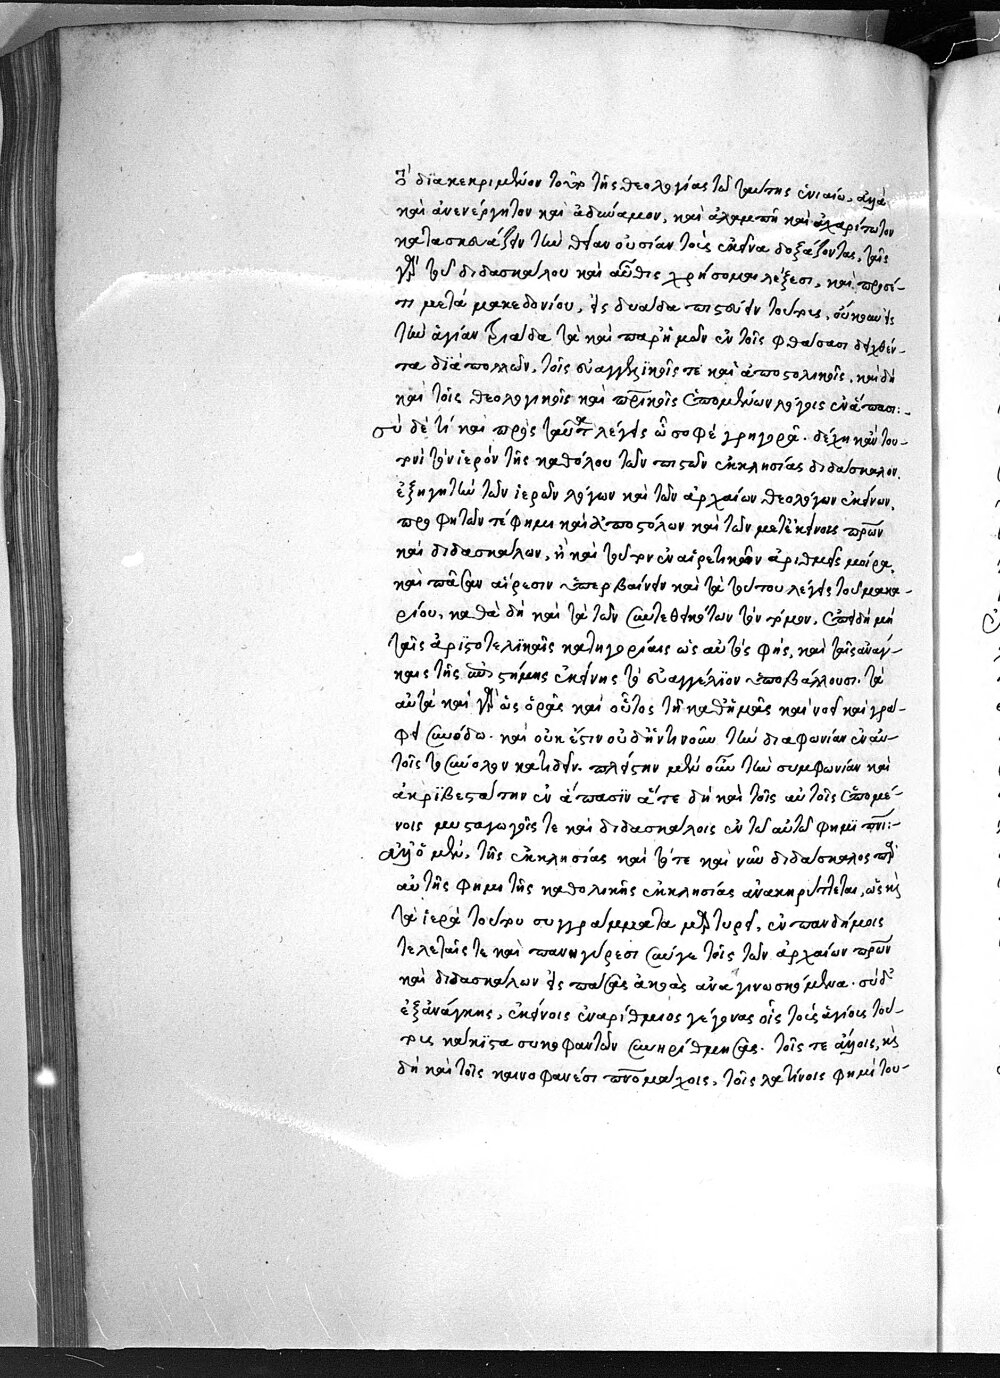 διακεκριμένον τῆς θεολογίας τῷ ταύτης ἑνιαίῳ, ἀλλὰ
καὶ ἀνενέργητον καὶ ἀδύναμον, καὶ ἀλαμπῆ καὶ ἀχαρίτωτον
κατασκευάζειν τὴν θείαν οὐσίαν τοὺς ἐκεῖνα δοξάζοντας, ταῖς
τοῦ διδασκάλου καὶ αὖθις χρήσομαι λέξεσι, καὶ προσέ-
τι μετὰ μακεδονίου, εἰς δυάδα πιστεύειν τούτους, οὐκοῦν εἰς
τὴν ἁγίαν τριάδα τὰ καὶ παρ' ἡμῶν ἐν τοῖς φθάσασι δειχθέν-
τα διὰ πολλῶν, τοῖς εὐαγγελικοῖς τε καὶ ἀποστολικοῖς, καὶ δὴ
καὶ τοῖς θεολογικοῖς καὶ πατρικοῖς ἑπομένων λόγοις ἐν ἅπασι:-
σὺ δὲ τί καὶ πρὸς ταῦτα λέγεις ὦ σοφὲ γρηγορᾶ. δέχῃ κἂν του-
τονὶ τὸν ἱερὸν τῆς καθόλου τῶν πιστῶν ἐκκλησίας διδάσκαλον.
ἐξηγητὴν τῶν ἱερῶν λόγων καὶ τῶν ἀρχαίων θεολόγων ἐκείνων.
προφητῶν τέ φημι καὶ ἀποστόλων καὶ τῶν μετ' ἐκείνοις πρων
καὶ διδασκάλων, ἢ καὶ τοῦτον ἐν αἱρετικῶν ἀριθμεῖς μοίρα,
καὶ πᾶσαν αἵρεσιν ὑπερβαίνειν καὶ τὰ τούτου λέγεις τοῦ μακα-
ρίου, καθὰ δὴ καὶ τὰ τῶν συντεθεικότων τὸν τόμον. ἐπειδὴ μὴ
ταῖς ἀριστοτελικαῖς κατηγορίαις ὡς αὐτὸς φής, καὶ ταῖς ἀνάγ-
καις τῆς ἐπιστήμης ἐκείνης τὸ εὐαγγέλιον ὑποβάλλουσι. τὰ
αὐτὰ καὶ γὰρ ὡς ὁρᾷς καὶ οὗτος τῇ καθ' ἡμᾶς καὶ νοεῖ καὶ γρά-
φει συνόδῳ. καὶ οὐκ ἔστιν οὐδ' ἥντιν' οὖν τὴν διαφωνίαν ἐν αὐ-
τοῖς τὸ σύνολον κατιδεῖν. πλείστην μὲν οὖν τὴν συμφωνίαν καὶ
ἀκριβεστάτην ἐν ἅπασιν ἅτε δὴ καὶ τοῖς αὐτοῖς ἑπομέ-
νοις μυσταγωγοῖς τε καὶ διδασκάλοις ἐν τῷ αὐτῷ φημὶ πνι:-
ἀλλ' ὁ μὲν, τῆς ἐκκλησίας καὶ τότε καὶ νῦν διδάσκαλος παρ'
αὐτῆς φημι τῆς καθολικῆς ἐκκλησίας ἀνακηρύττεται, ὡς καὶ
τὰ ἱερὰ τούτου συγγράμματα μαρτυρεῖ, ἐν πανδήμοις
τελεταῖς τε καὶ πανηγύρεσι σύν γε τοῖς τῶν ἀρχαίων πρων
καὶ διδασκάλων εἰς πάσας ἀκοὰς ἀναγινωσκόμενα. σὺ δ'
ἐξ ἀνάγκης, ἐκείνοις ἐναρίθμιος γέγονας οἷς τοὺς ἁγίους τού-
τους κάκιστα συκοφαντῶν συνηρίθμησας. τοῖς τε ἄλλοις, καὶ
δὴ καὶ τοῖς καινοφανέσι πνομάχοις, τοῖς λατίνοις φημί του-